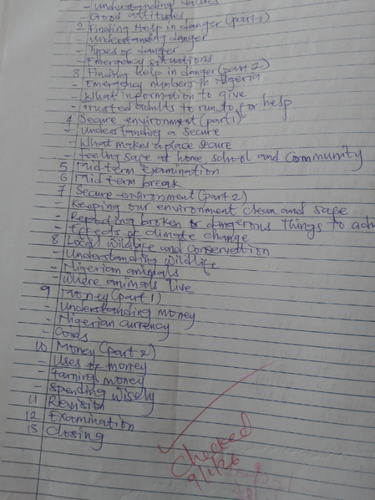 - Understanding values
- Good attitudes
2 Finding Help in danger (part 1)
- Understanding danger
- Types of danger
- Emergency situations
3 Finding help in danger (part 2)
- Emergency numbers in Nigeria
- What information to give
- trusted adults to run to for help
4 Secure environment (part 1)
- Understanding a secure
- What makes a place secure
- Feeling safe at home school and Community
5 Mid term examination
6 Mid term break
7 Secure environment (part 2)
- Keeping our environment clean and safe
- Reporting broken or dangerous things to adu
- Effects of climate change
8 Local Wildlife and conservation
- Understanding wildlife
- Nigerian animals
- Where animals live
9 Money (part 1)
- Understanding money
- Nigerian currency
- Coins
10 Money (part 2)
- Uses of money
- Earning money
- Spending wisely
11 Revision
12 Examination
13 Closing
Checked